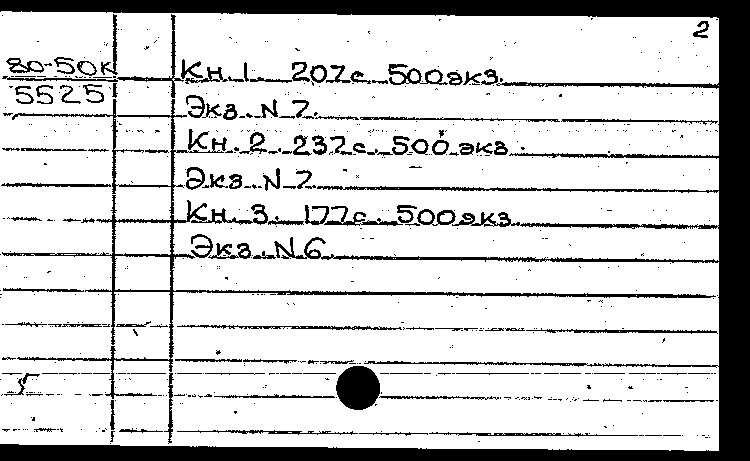 2
80-50к
5525
Кн. 1. 207с. 500экз.
Экз. N 7.
Кн. 2. 237с. 500 экз.
Экз. N 7.
Кн. 3. 177с. 500экз.
Экз. N 6.